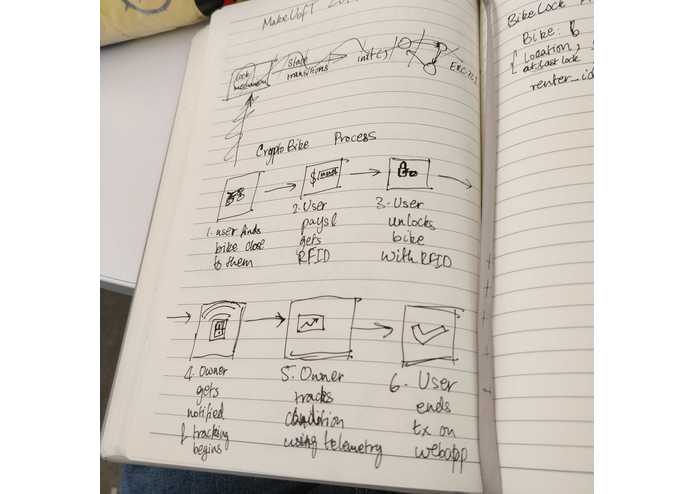 MakeUofT
lock mechanism
State transitions
init()
CryptoBike Process
$
1. user finds bike close to them
2. User pays & gets RFID
3. User unlocks bike with RFID
4. Owner gets notified & tracking begins
5. Owner tracks condition using telemetry
6. User ends tx on webapp
BikeLock
Bike:
{ location,
at, last lock
renter_id